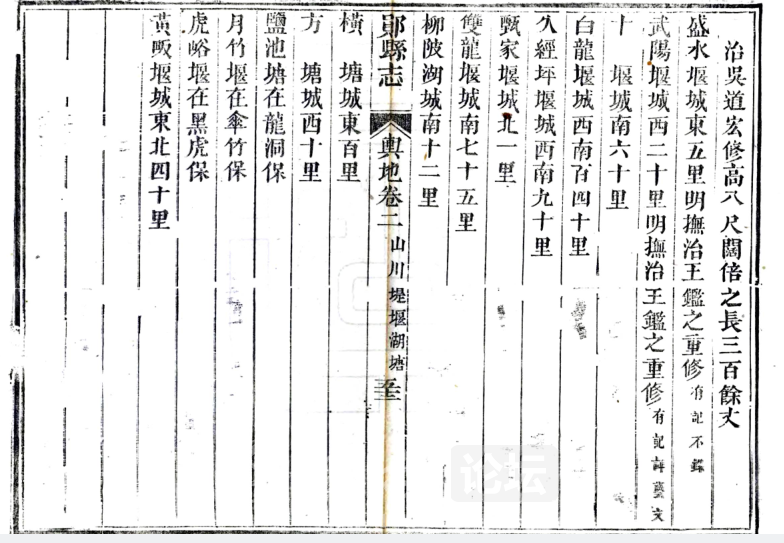 治吳道宏修高八尺闊倍之長三百餘丈
盛水堰城東五里明撫治王鑑之重修有記不錄
武陽堰城西二十里明撫治王鑑之重修有記詳藝文
十 堰城南六十里
白龍堰城西南百四十里
久經坪堰城西南九十里
甄家堰城北一里
雙龍堰城南七十五里
柳陂湖城南十二里
鄖縣志 輿地卷二 山川堤堰湖塘
橫 塘城東百里
方 塘城西十里
鹽池塘在龍洞保
月竹堰在傘竹保
虎峪堰在黑虎保
黃畈堰城東北四十里
论坛